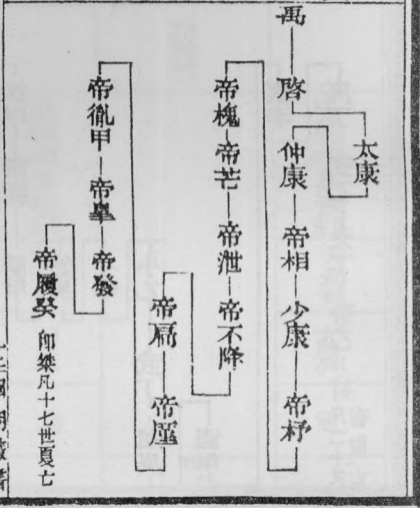 禹
啓
太康
仲康
帝相
少康
帝杼
帝槐
帝芒
帝泄
帝不降
帝扃
帝厪
帝胤甲
帝皋
帝發
帝履癸
卽桀凡十七世夏亡